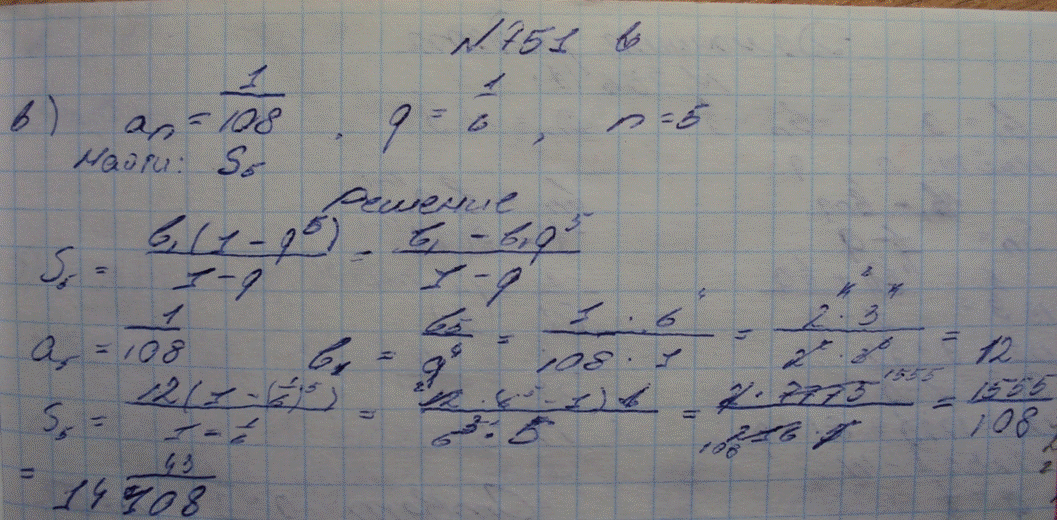 N. 751 в
в) aₙ = 1/108, q = 1/6, n = 5
Найти: S₅
Решение
S₅ = b₁(1 - q⁵)/(1 - q) = (b₁ - b₁q⁵)/(1 - q)
a₅ = 1/108 b₁ = b5/q⁴ = (1 · 6⁴)/(108 · 1) = (2⁴ · 3⁴)/(2² · 3³) = 12
S₅ = 12(1 - (1/6)⁵)/(1 - 1/6) = 12 · (6⁵ - 1) 6/(6⁵ · 5) = 2 · 7775 1555/(108 216 · 5) = 1555/108
= 14 43/108